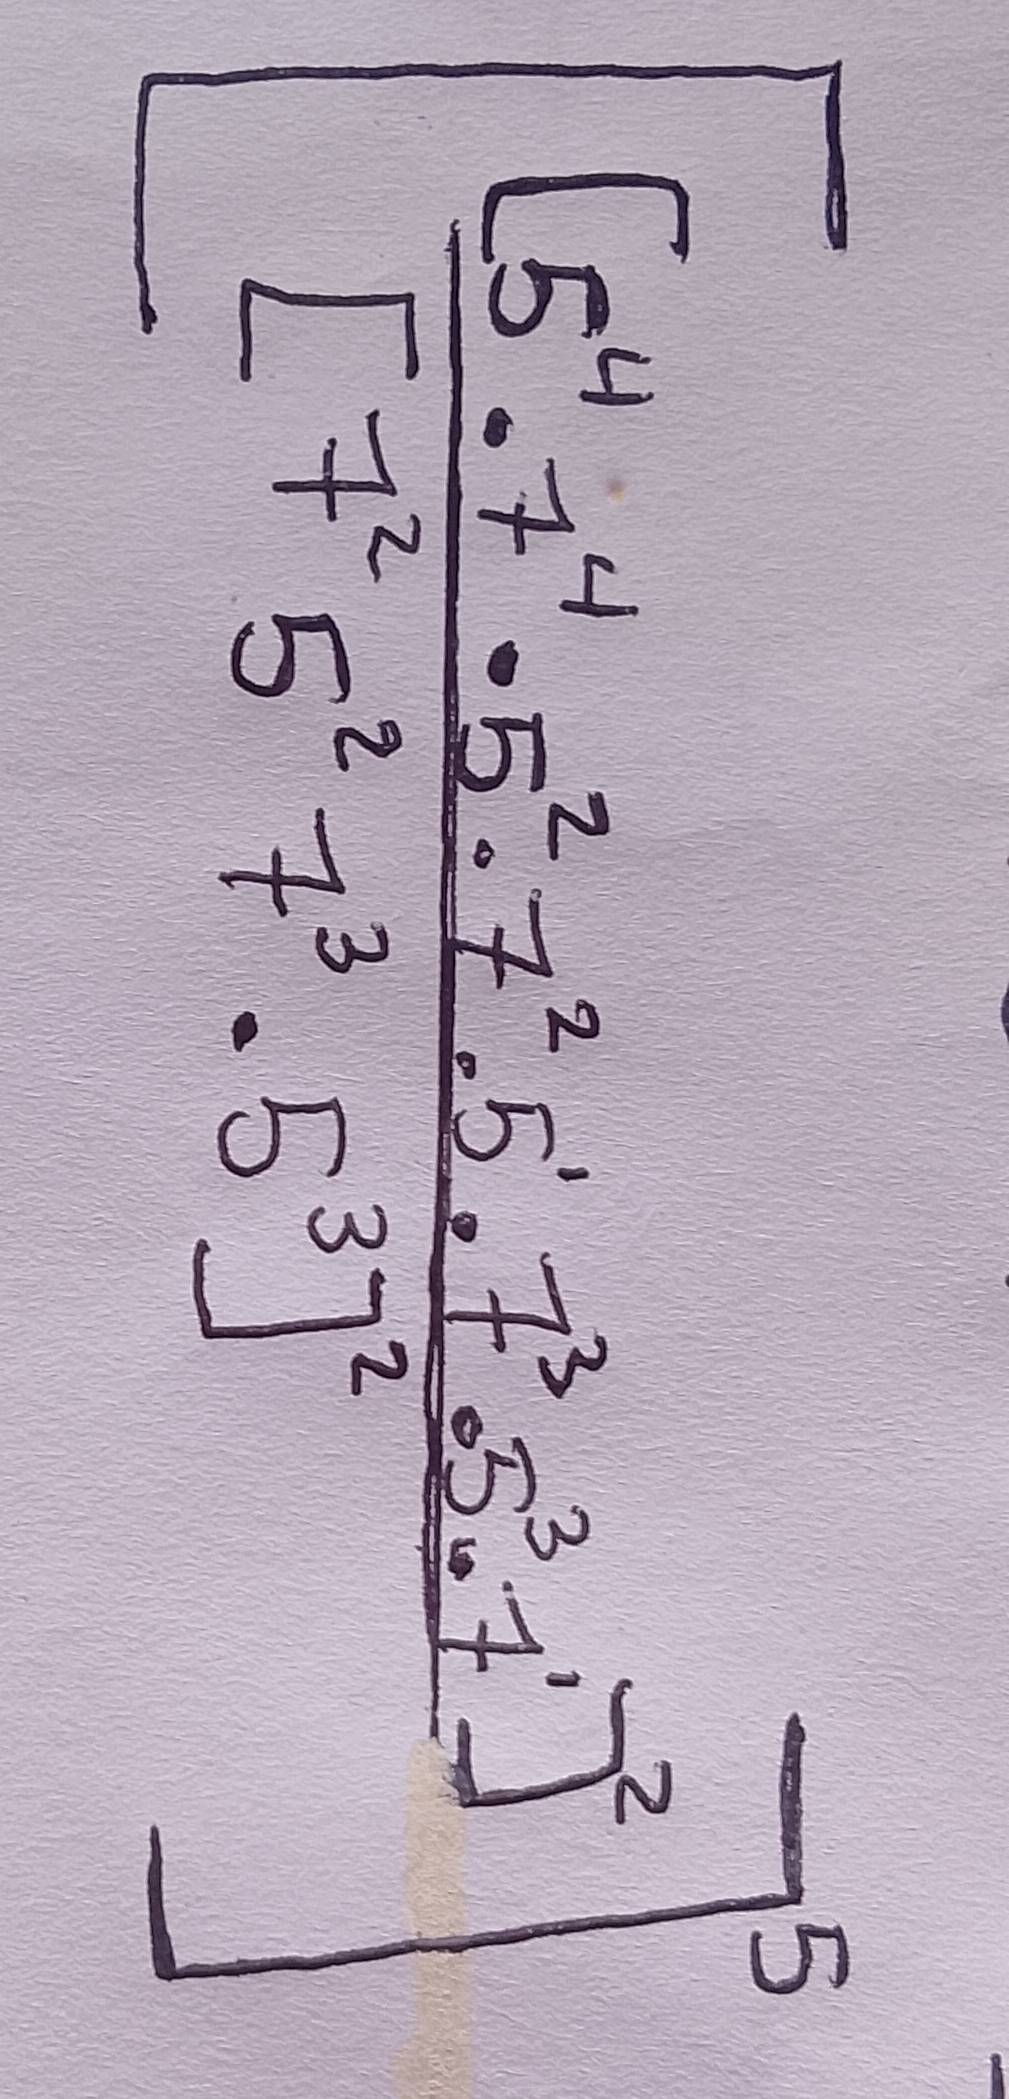 [ [5⁴ · 7⁴ · 5² · 7² · 5¹ · 7³ · 5³ · 7¹]²
[7² 5² 7³ · 5³]² ]⁵